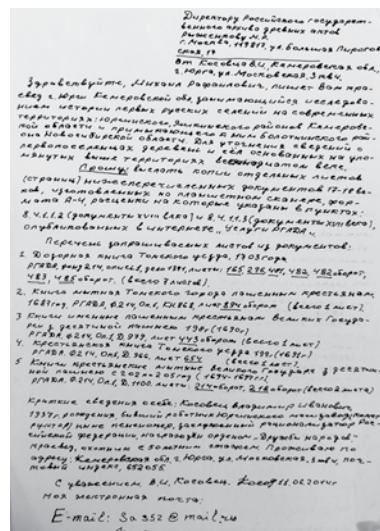 Директору Российского государст-
венного архива древних актов
Рыженкову М.Р.
г. Москва, 119817, ул. Большая Пирогов
ская, 17
От Косовца В.И., Кемеровская обл.,
г. Юрга, ул. Московская, 3 кв 4.
Здравствуйте, Михаил Рафаилович, пишет Вам кра-
евед г. Юрги Кемеровской обл. занимающийся исследова-
нием истории первых русских селений на современных
территориях: Юргинского, Яшкинского районов Кемеровс-
кой области и примыкающего к ним Болотнинского рай-
она Новосибирской области. Для уточнения сведений о
первопоселенцах деревень и сёл основанных на упо-
мянутых выше территориях в веке,
Прошу: выслать копии отдельных листов
(страниц) нижеперечисленных документов 17-18 ве-
ков, изготовленных на планшетном сканере, фор-
мата А-4, расценки на которые указаны в пунктах:
8.4.1.1.2 (документы XVIII века) и 8.4.1.1.3 (документы XVII века),
опубликованных в интернете „Услуги РГАДА“.
Перечень запрашиваемых листов из документов:
1. Дозорная книга Томского уезда, 1703 года
РГАДА, фонд 214, опись 1, дело 1371, листы: 165, 296, 481, 482, 482 оборот,
483, 485 оборот. (всего 7 листов).
2. Книга именная Томского города пашенным крестьянам,
1687 год, РГАДА, Ф.214, Оп.1, Кн.868, лист 894 оборот (всего 1 лист).
3. Книги именные пашенным крестьянам Великих Госуда-
рей з десятинной пашнею 198 г. (1690 г.)
РГАДА, Ф.214, Оп.1, Д. 979, лист 443 оборот (всего 1 лист)
4. Крестьянская книга Томского уезда 199 г. (1691 г.)
РГАДА, Ф.214, Оп.1, Д. 966, лист 654 (всего 1 лист).
5. Книги крестьянские именные великого Государя з десятин-
ной пашнею с 202 по 205 год (1694-1697 гг.),
РГАДА, Ф.214, Оп.1, Д. 1100. листы: 214 оборот, 218 оборот (всего 2 листа)
Краткие сведения о себе: Косовец Владимир Иванович,
1937 г. рождения, бывший работник Юргинского машзавода
ныне пенсионер, заслуженный рационализатор Рос-
сийской федерации, награждён орденом „Дружбы народов“,
краевед, охотник с 50 летним стажем. Проживаю по
адресу: Кемеровская обл. г. Юрга, ул. Московская, 3 кв 4, поч-
товый индекс, 652055
С уважением В.И. Косовец. 11.06.2014 г.
Моя электронная почта:
E-mail: Sa352@mail.ru